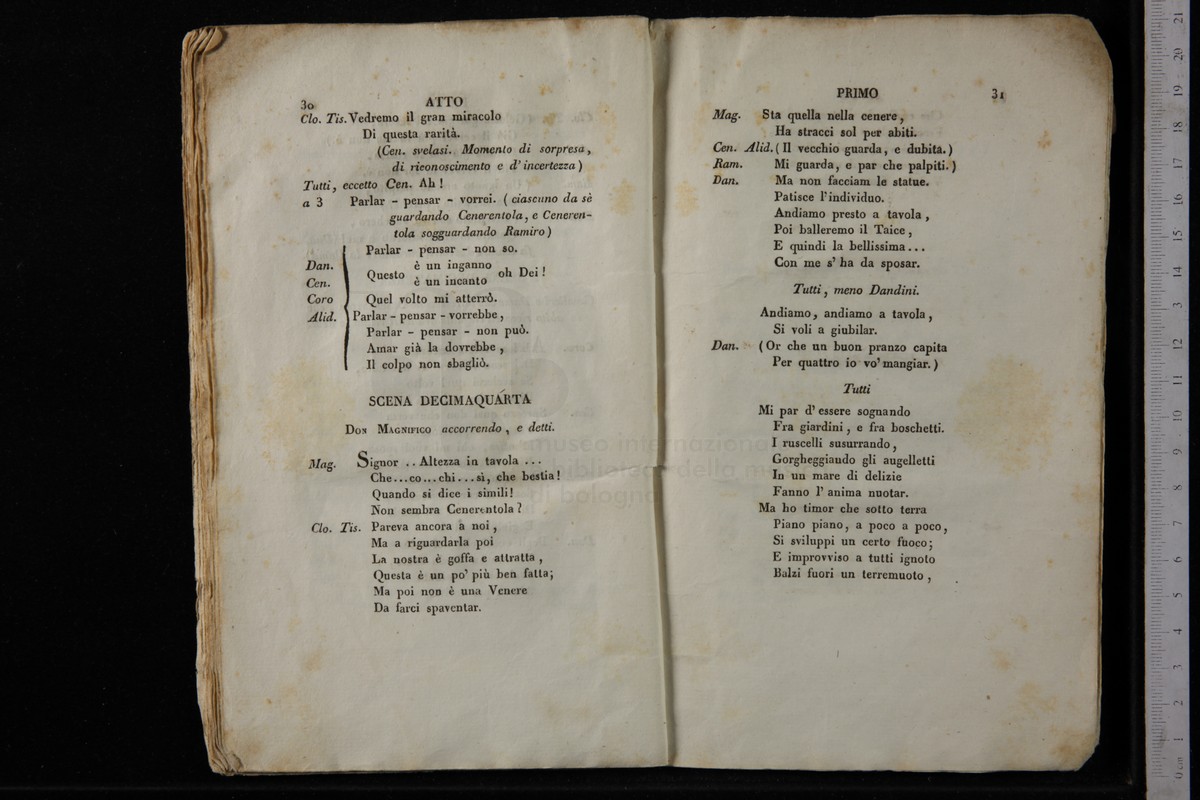 30 ATTO
Clo. Tis. Vedremo il gran miracolo
Di questa rarità.
(Cen. svelasi. Momento di sorpresa,
di riconoscimento e d' incertezza)
Tutti, eccetto Cen. Ah!
a 3 Parlar - pensar - vorrei. (ciascuno da sè
guardando Cenerentola, e Ceneren-
tola sogguardando Ramiro)
Parlar - pensar - non so.
Dan. Questo è un inganno oh Dei!
Cen. è un incanto
Coro Quel volto mi atterrò.
Alid. Parlar - pensar - vorrebbe,
Parlar - pensar - non può.
Amar già la dovrebbe,
Il colpo non sbagliò.
SCENA DECIMAQUARTA
DON MAGNIFICO accorrendo, e detti.
Mag. Signor .. Altezza in tavola ...
Che...co...chi...sì, che bestia!
Quando si dice i simili!
Non sembra Cenerentola?
Clo. Tis. Pareva ancora a noi,
Ma a riguardarla poi
La nostra è goffa e attratta,
Questa è un po' più ben fatta;
Ma poi non è una Venere
Da farci spaventar.
PRIMO 31
Mag. Sta quella nella cenere,
Ha stracci sol per abiti.
Cen. Alid. (Il vecchio guarda, e dubita.)
Ram. Mi guarda, e par che palpiti.)
Dan. Ma non facciam le statue.
Patisce l'individuo.
Andiamo presto a tavola,
Poi balleremo il Taice,
E quindi la bellissima...
Con me s' ha da sposar.
Tutti, meno Dandini.
Andiamo, andiamo a tavola,
Si voli a giubilar.
Dan. (Or che un buon pranzo capita
Per quattro io vo' mangiar.)
Tutti
Mi par d' essere sognando
Fra giardini, e fra boschetti.
I ruscelli susurrando,
Gorgheggiando gli augelletti
In un mare di delizie
Fanno l' anima nuotar.
Ma ho timor che sotto terra
Piano piano, a poco a poco,
Si sviluppi un certo fuoco;
E improvviso a tutti ignoto
Balzi fuori un terremuoto,
museo internazionale
biblioteca della musica
di bologna
0 cm 1 2 3 4 5 6 7 8 9 10 11 12 13 14 15 16 17 18 19 20 21